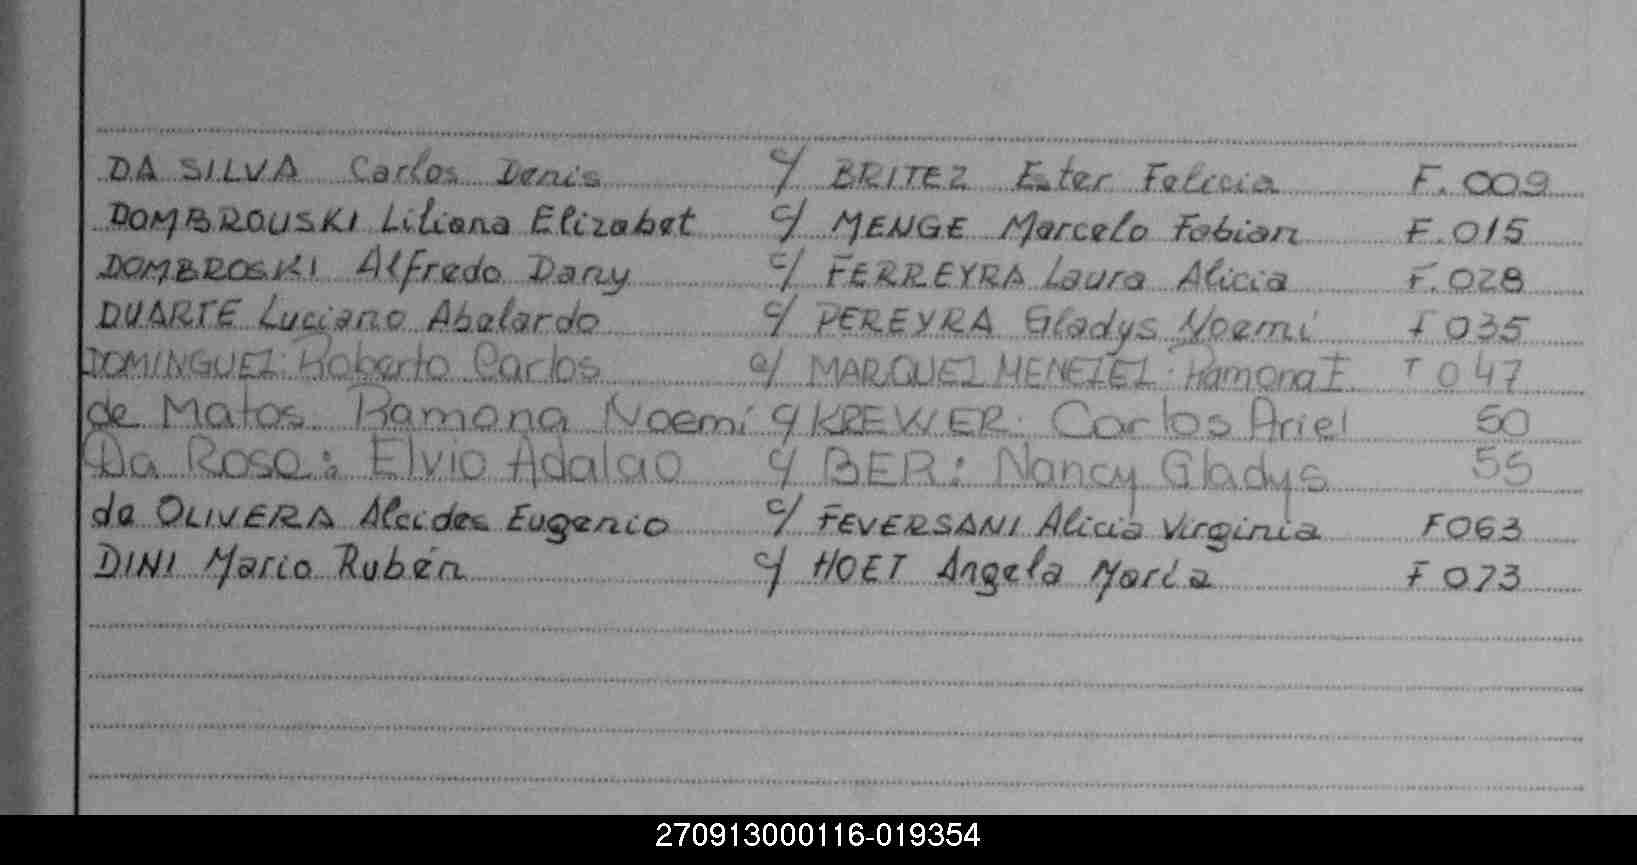 DA SILVA Carlos Denis c/ BRITEZ Ester Felicia F. 009
DOMBROUSKI Liliana Elizabet c/ MENGE Marcelo Fabian F. 015
DOMBROSKI Alfredo Dany c/ FERREYRA Laura Alicia F. 028
DUARTE Luciano Abelardo c/ PEREYRA Gladys Noemi F 035
DOMINGUEZ: Roberto Carlos c/ MARQUEZ MENEZEZ. Ramona E. F 047
de Matos Ramona Noemi c/ KREWER. Carlos Ariel 50
Da Rosa: Elvio Adalao c/ BER: Nancy Gladys 55
de OLIVERA Alcides Eugenio c/ FEVERSANI Alicia Virginia F 063
DINI Mario Rubén c/ HOET Angela María F 073
270913000116-019354